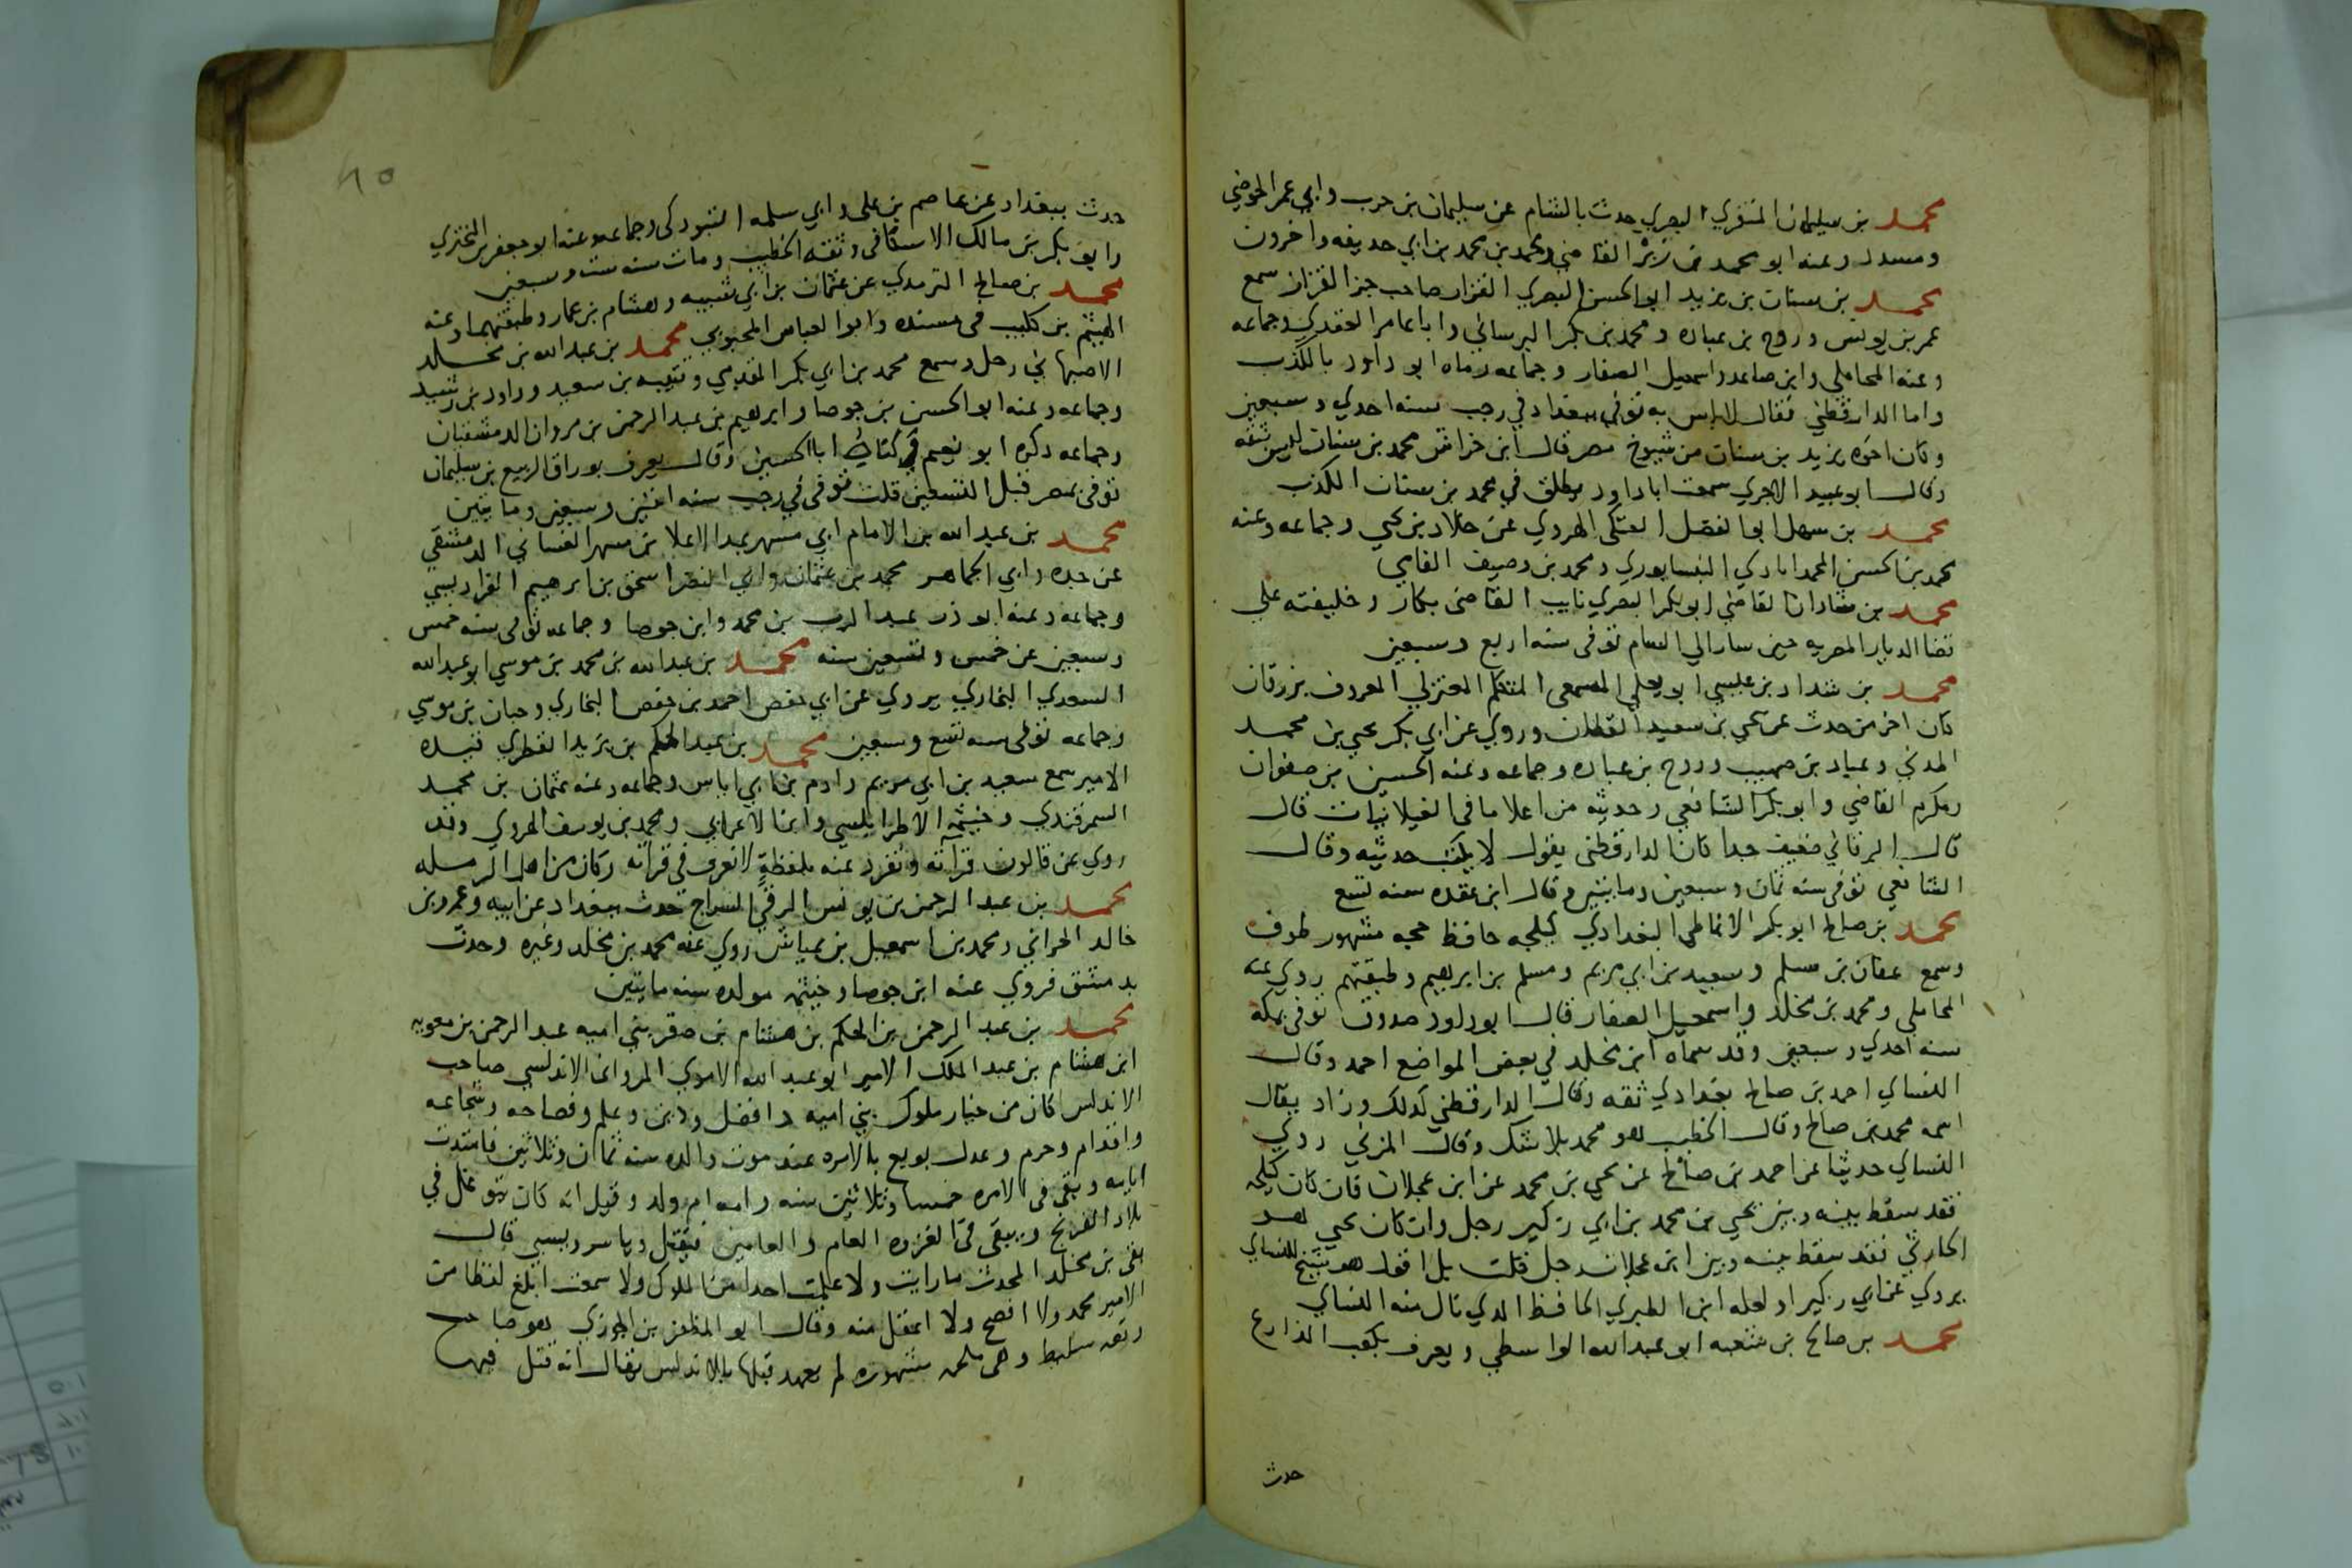 محمد بن سليمان المنقري البصري حدث بالشام عن سليمان بن حرب وابي عمر الحوضي
ومسدد وعنه ابو محمد بن زبر القاضي ومحمد بن محمد بن ابي حذيفه واخرون
محمد بن سنان بن يزيد ابو الحسن البصري القزاز صاحب جز القزاز سمع
عمر بن يونس وروح بن عباده ومحمد بن بكر البرساني وابا عامر العقدي وجماعه
وعنه المحاملي وابن صاعد واسمعيل الصفار وجماعه رماه ابو داود بالكذب
واما الدارقطني فقال لا باس به توفي ببغداد في رجب سنه احدي وسبعين
وكان اخوه يزيد بن سنان من شيوخ مصر قال ابن خراش محمد بن سنان ليس بثقه
وقال ابو عبيد الاجري سمعت ابا داود يطلق في محمد بن سنان الكذب
محمد بن سهل ابو الفضل العتكي الهروي عن خلاد بن يحيي وجماعه وعنه
محمد بن الحسن المحمدابادي النيسابوري ومحمد بن وصيف الفامي
محمد بن شاذان القاضي ابو بكر البصري نايب القاضي بكار وخليفته علي
قضا الديار المصريه حين سار الي الشام توفي سنه اربع وسبعين
محمد بن شداد بن عيسي ابو يعلي المسمعي المتكلم المعتزلي المعروف بزرقان
كان اخر من حدث عن يحيي بن سعيد القطان وروي عن ابي بكر يحيي بن محمد
المدني وعباد بن صهيب وروح بن عباده وجماعه وعنه الحسين بن صفوان
ومكرم القاضي وابو بكر الشافعي وحديثه من اعلا ما في الغيلانيات قال
قال البرقاني ضعيف جدا كان الدارقطني يقول لا يكتب حديثه وقال
الشافعي توفي سنه ثمان وسبعين ومايتين وقال ابن عقده سنه تسع
محمد بن صالح ابو بكر الانماطي البغدادي كيلجه حافظ حجه مشهور طوف
وسمع عفان بن مسلم وسعيد بن ابي مريم ومسلم بن ابرهيم وطبقتهم روي عنه
المحاملي ومحمد بن مخلد واسمعيل الصفار قال ابو داود صدوق توفي بمكة
سنه احدي وسبعين وقد سماه ابن مخلد في بعض المواضع احمد وقال
النساي احمد بن صالح بغدادي ثقه وقال الدارقطني كذلك وزاد يقال
اسمه محمد بن صالح وقال الخطيب هو محمد بلا شك وقال المزني روي
النساي حديثا عن احمد بن صالح عن يحيي بن محمد عن ابن عجلان فان كان كيلجه
فقد سقط بينه وبين يحيي بن محمد بن ابي زكير رجل وان كان يحيي هو
الحارثي فقد سقط بينه وبين ابن عجلان رجل قلت بل اقول هو شيخ للنساي
يروي عن ابي زكير او لعله ابن الطبري الحافظ الذي نال منه النساي
محمد بن صالح بن شعبه ابو عبد الله الواسطي ويعرف بكعب الذارع
حدث
حدث ببغداد عن عاصم بن علي وابي سلمه التبوذكي وجماعه وعنه ابو جعفر بن البختري
وابو بكر بن مالك الاسكافي وثقه الخطيب ومات سنه ست وسبعين
محمد بن صالح الترمذي عن عثمان بن ابي شيبه وهشام بن عمار وطبقتهما وعنه
الهيثم بن كليب في مسنده وابو العباس المحبوبي محمد بن عبد الله بن مخلد
الاصبهاني رحل وسمع محمد بن ابي بكر المقدمي وقتيبه بن سعيد وداود بن رشيد
وجماعه وعنه ابو الحسن بن جوصا وابرهيم بن عبد الرحمن بن مروان الدمشقيان
وجماعه ذكره ابو نعيم في كتابه ابا الحسين وقال يعرف بوراق الربيع بن سليمان
توفي بمصر قبل التسعين قلت توفي في رجب سنه اثنين وسبعين ومايتين
محمد بن عبد الله بن الامام ابي مسهر عبد الاعلا بن مسهر الغساني الدمشقي
عن جده وابي الجماهر محمد بن عثمان وابي النضر اسحق بن ابرهيم الفراديسي
وجماعه وعنه ابو ذر عبد الرب بن محمد وابن جوصا وجماعه توفي سنه خمس
وسبعين عن خمس وتسعين سنه محمد بن عبد الله بن محمد بن موسي ابو عبد الله
السعدي البخاري يروي عن ابي حفص احمد بن حفص البخاري وحبان بن موسي
وجماعه توفي سنه تسع وسبعين محمد بن عبد الحكم بن يزيد القطري قيده
الامير سمع سعيد بن ابي مريم وادم بن ابي اياس وجماعه وعنه عثمان بن محمد
السمرقندي وخيثمه الاطرابلسي وابن الاعرابي ومحمد بن يوسف الهروي وقد
روي عن قالون قراته وتفرد عنه بلفظة لا تعرف في قراته وكان من اهل الرمله
محمد بن عبد الرحمن بن يونس الرقي السراج حدث ببغداد عن ابيه وعمرو بن
خالد الحراني ومحمد بن اسمعيل بن عياش روي عنه محمد بن مخلد وغيره وحدث
بدمشق فروي عنه ابن جوصا وخيثمه مولده سنه مايتين
محمد بن عبد الرحمن بن الحكم بن هشام بن صقر بني اميه عبد الرحمن بن معويه
ابن هشام بن عبد الملك الامير ابو عبد الله الاموي المرواني الاندلسي صاحب
الاندلس كان من خيار ملوك بني اميه ذا فضل ودين وعلم وفصاحه وشجاعه
واقدام وحزم وعدل بويع بالامره عند موت والده سنه ثمان وثلاثين فامتدت
ايامه وبقي في الامره خمسا وثلاثين سنه وامه ام ولد وقيل انه كان يتوغل في
بلاد الفرنج ويبقي في الغزوه العام والعامين فيقتل وياسر ويسبي قال
بقي بن مخلد المحدث ما رايت ولا علمت احدا من الملوك ولا سمعت ابلغ لفظا من
الامير محمد ولا افصح ولا اعقل منه وقال ابو المظفر بن الجوزي هو صاحب
وقعه سليط وهي ملحمه مشهوره لم يعهد قبلها بالاندلس يقال انه قتل فيها